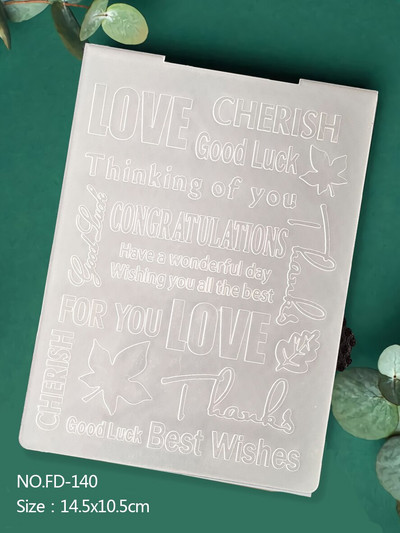 LOVE
CHERISH
Good Luck
Thinking of you
CONGRATULATIONS
Good Luck
Thanks
Have a wonderful day
Wishing you all the best
FOR YOU
LOVE
CHERISH
Thanks
Good Luck
Best Wishes
NO.FD-140
Size : 14.5x10.5cm